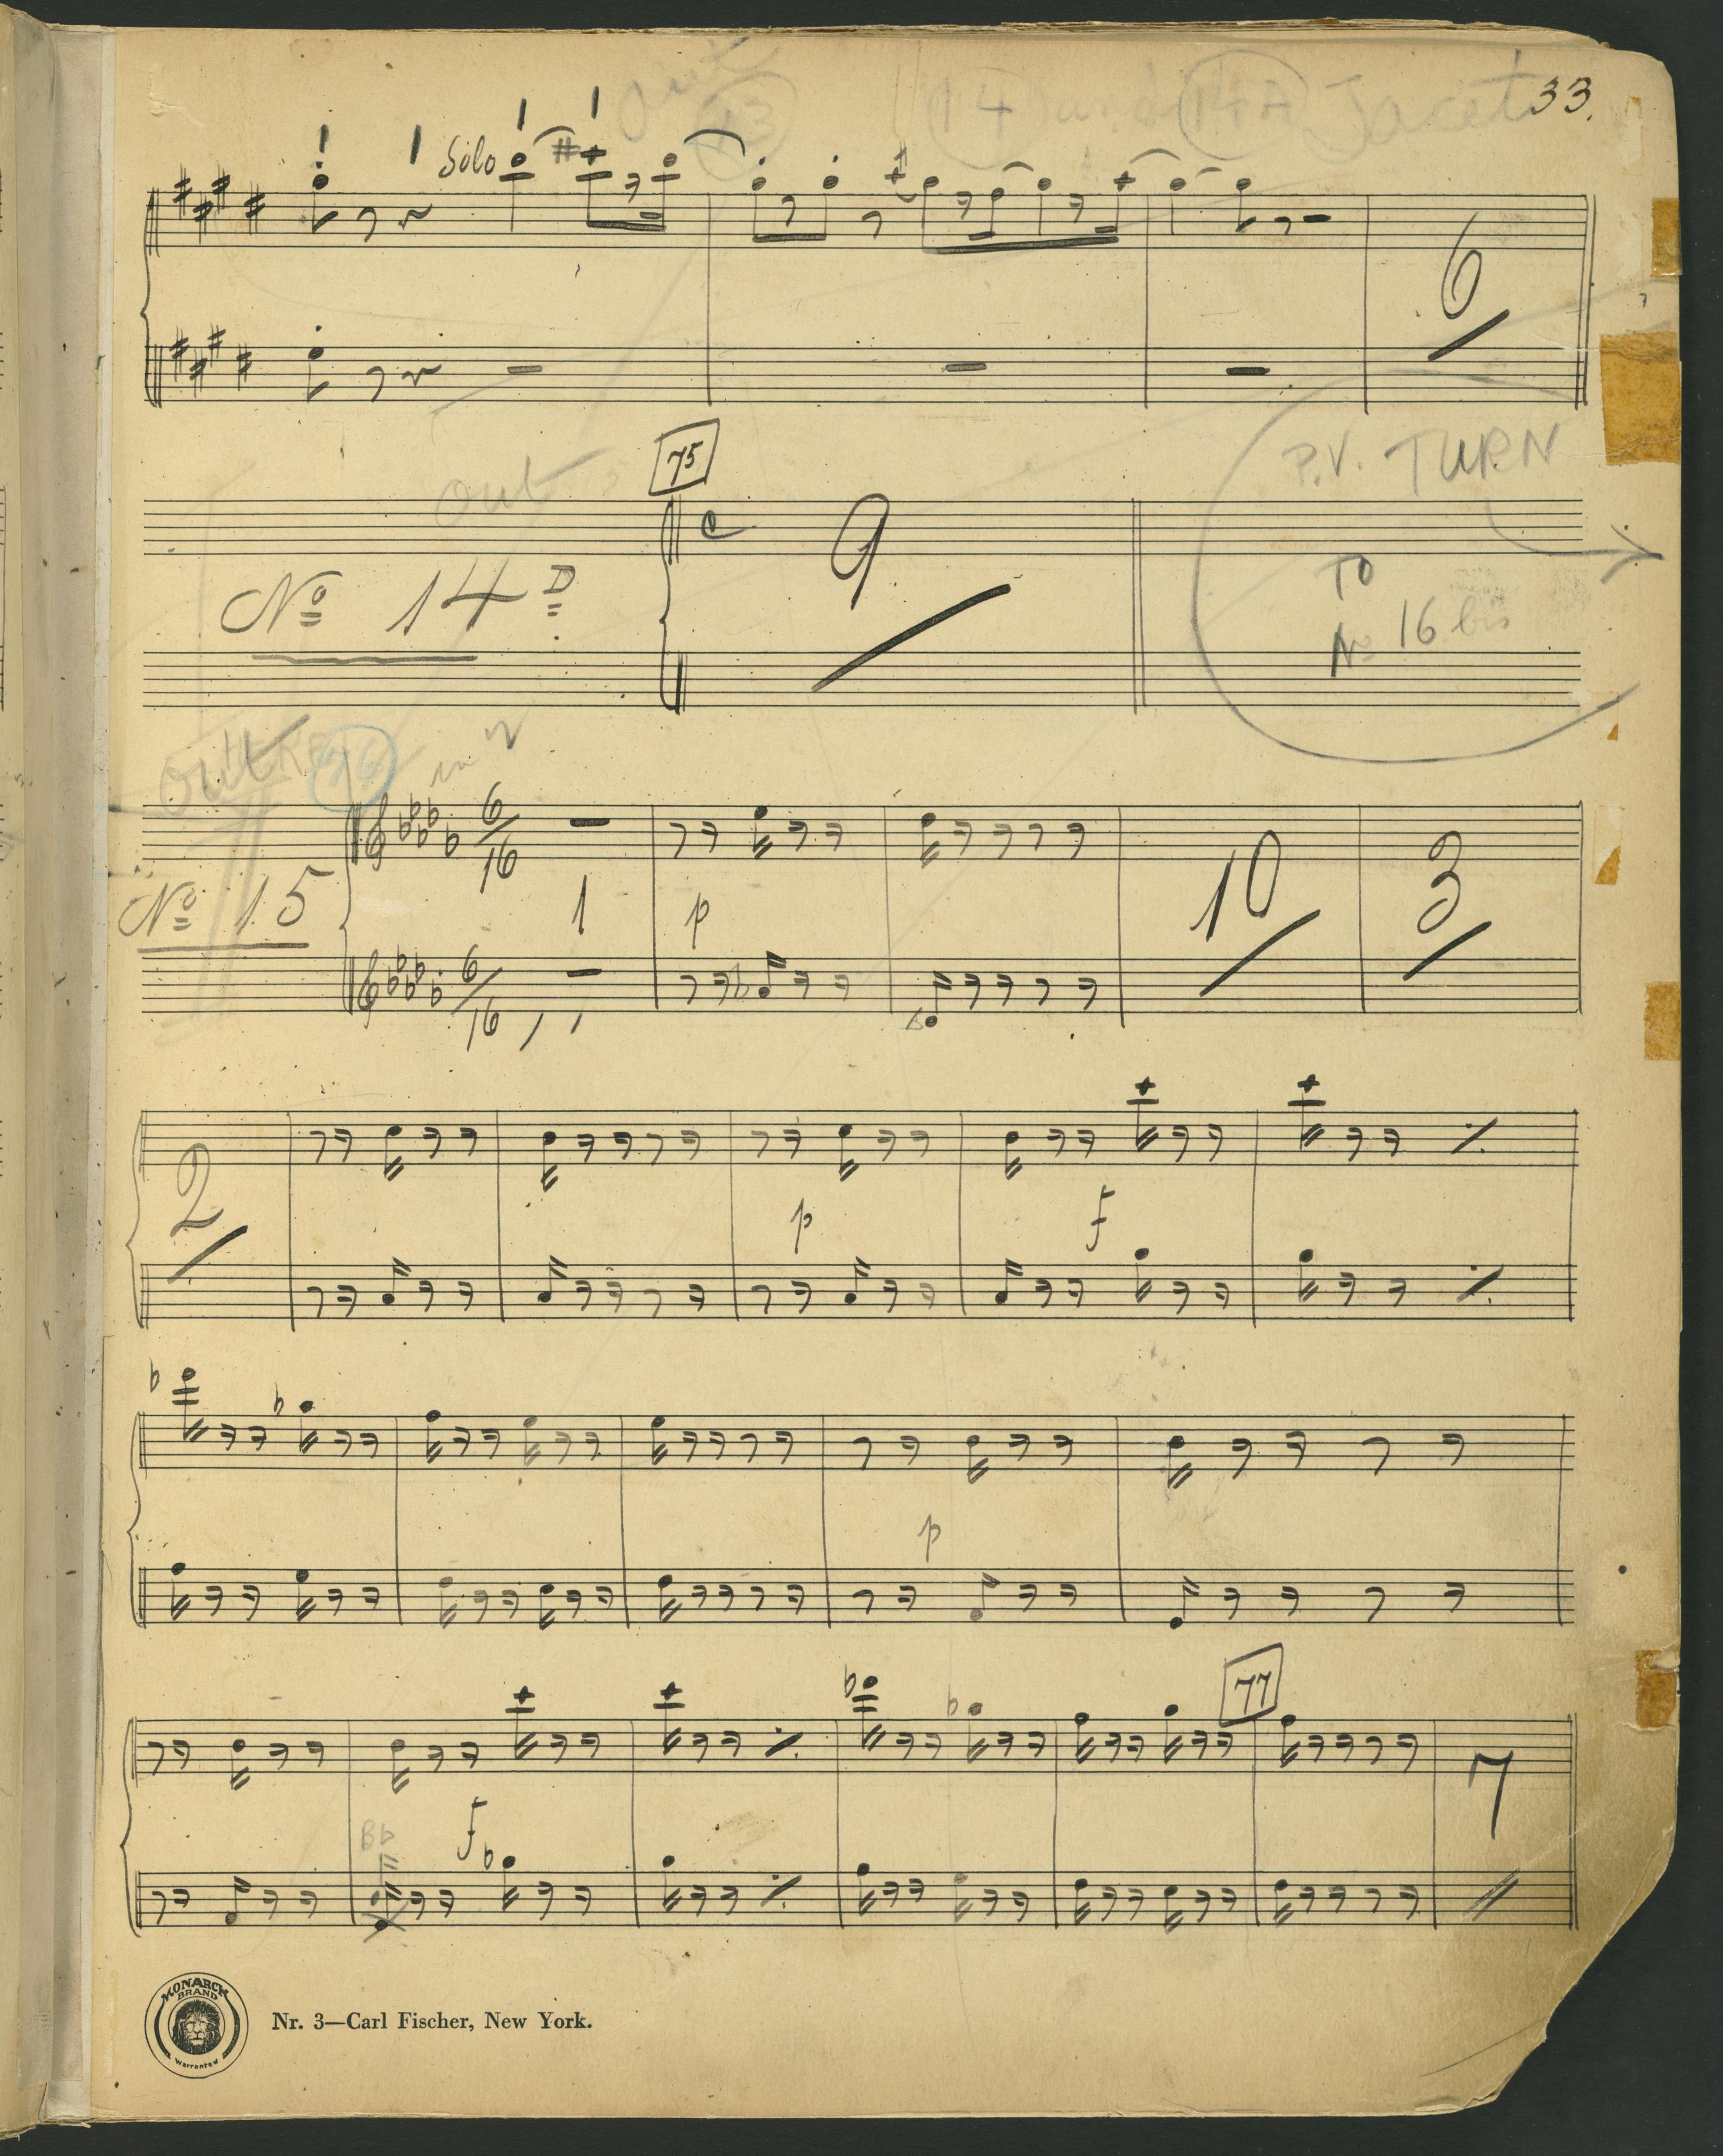 Out 13 14 and 14A Tacet 33.
Solo
6
75
P.V. TURN
out
C 9
TO
No 14 D
No 16 bis
Out HERE 76 in 2
6/16
No 15
1 p 10 3
6/16
2 p f
p
77
7
Bb f
MONARCH
BRAND
Warranted
Nr. 3—Carl Fischer, New York.